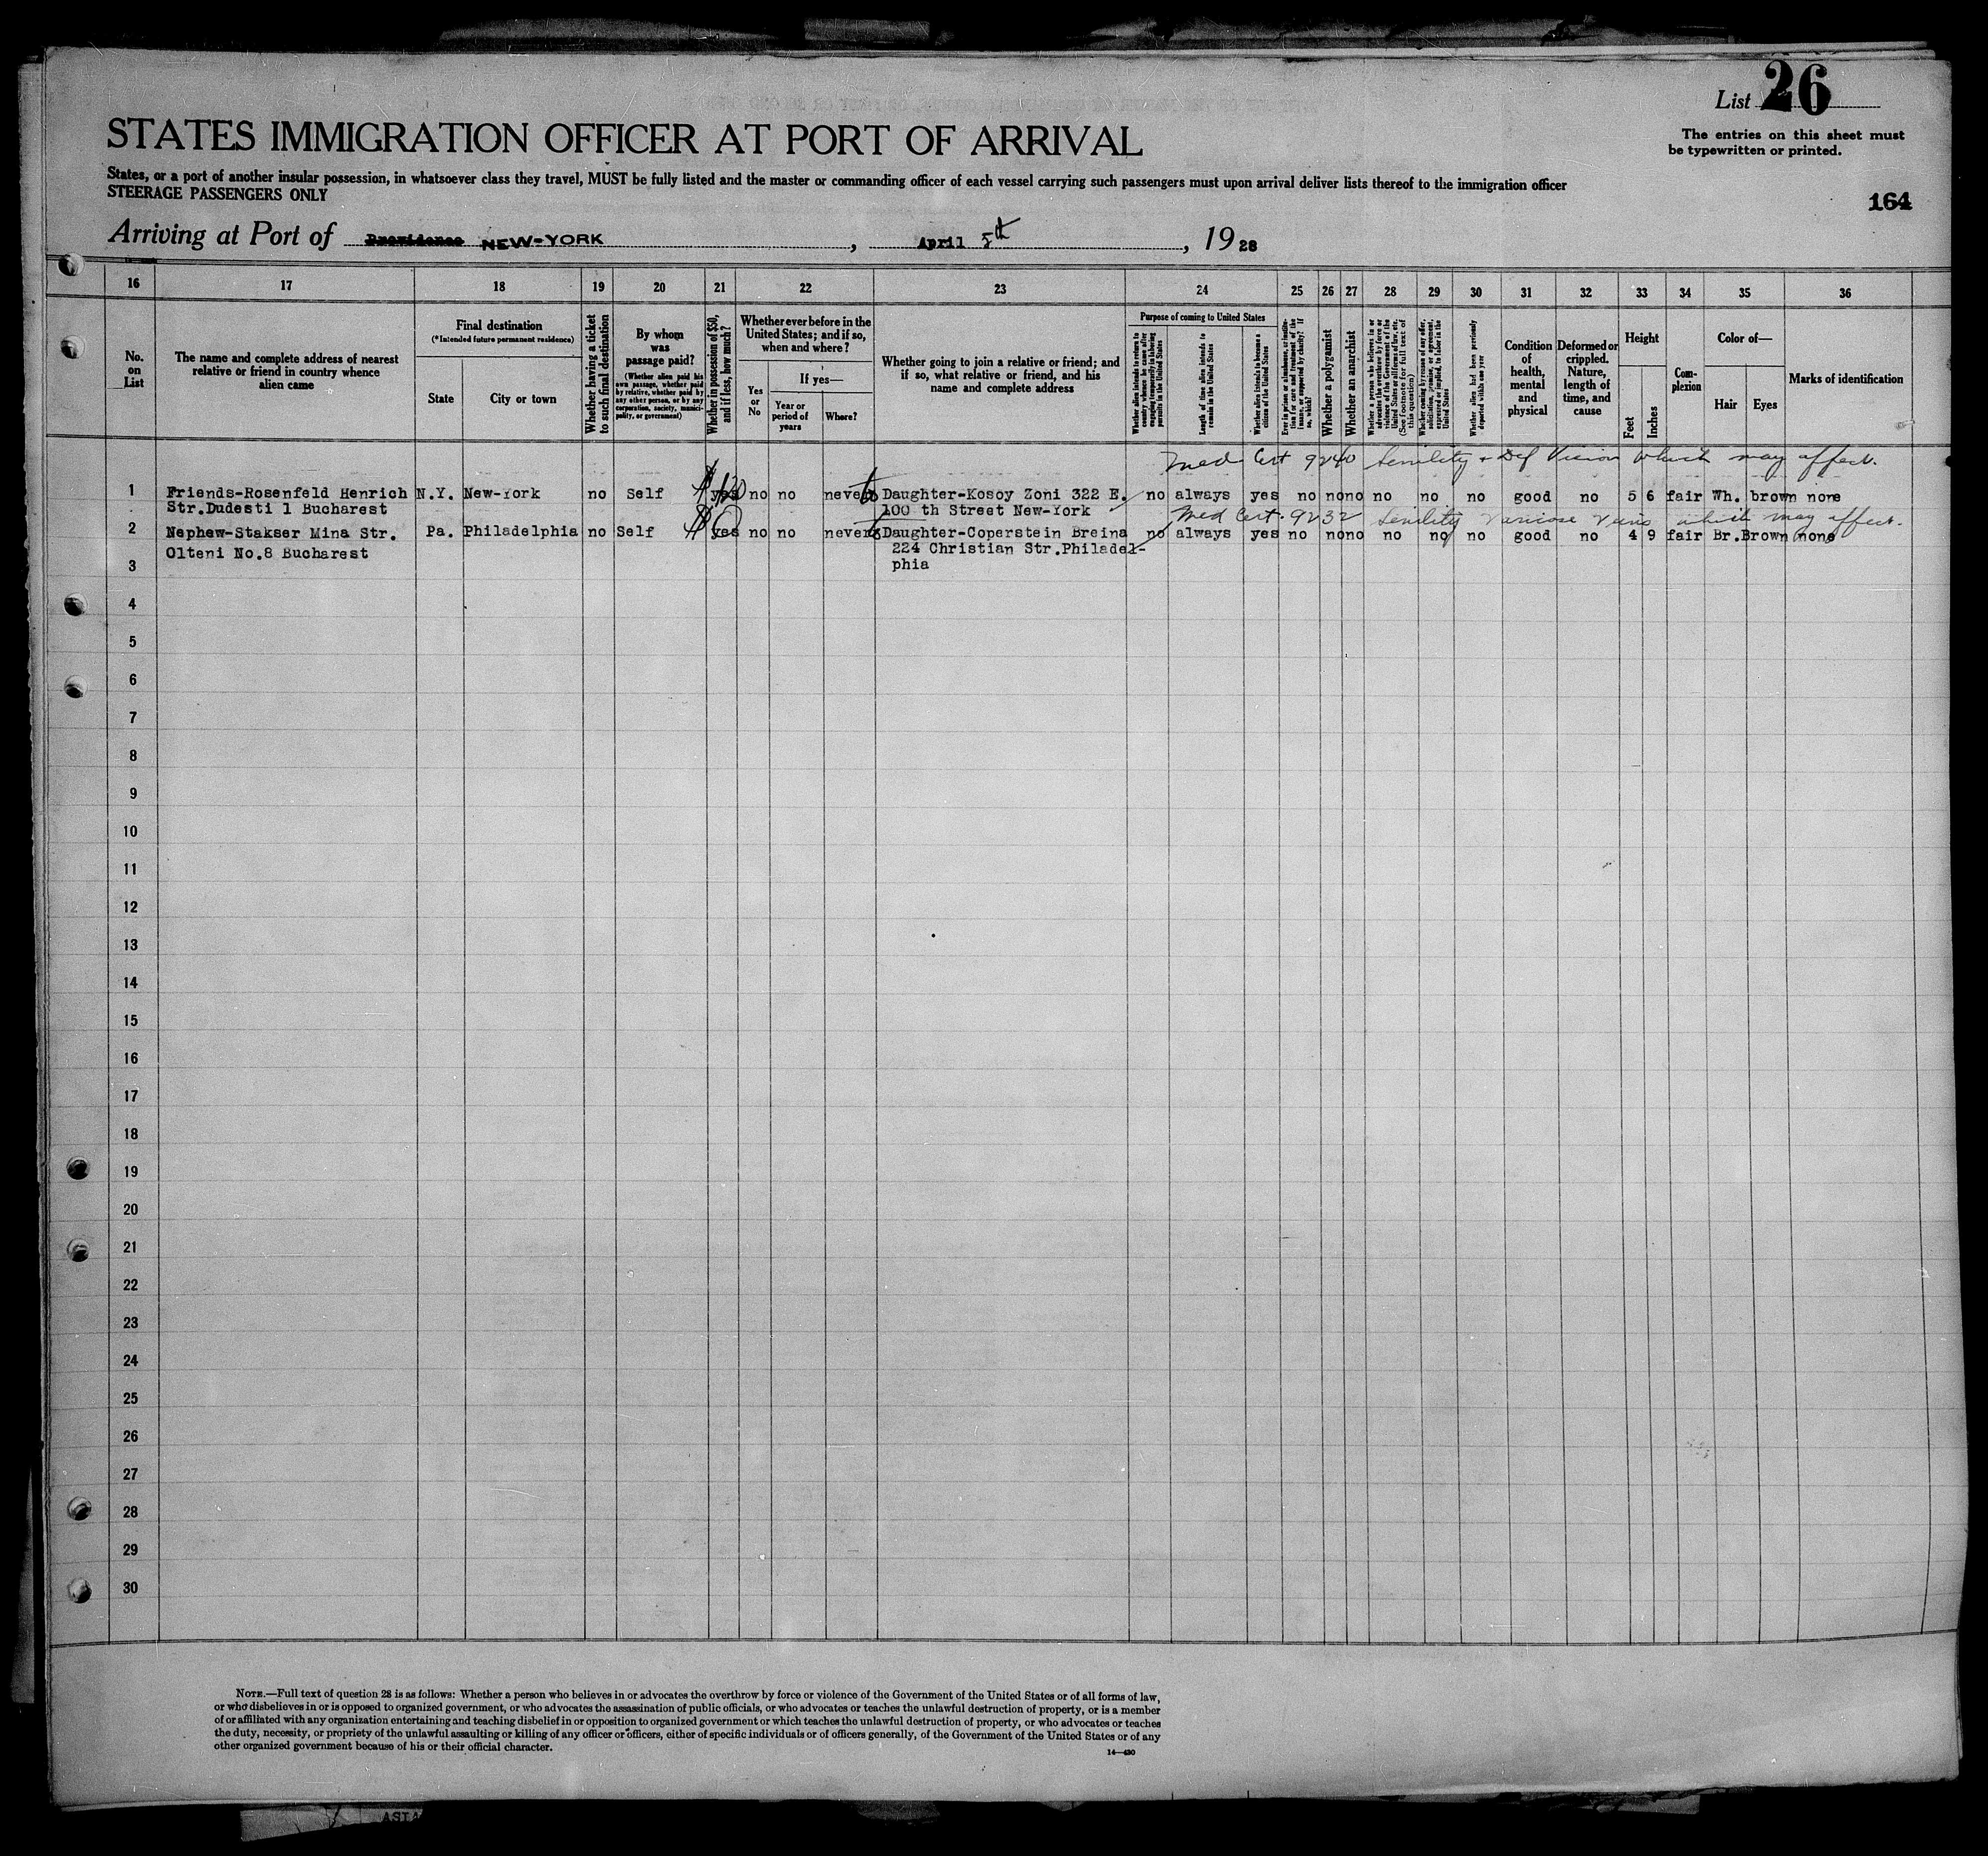 List 26
The entries on this sheet must
be typewritten or printed.
STATES IMMIGRATION OFFICER AT PORT OF ARRIVAL
States, or a port of another insular possession, in whatsoever class they travel, MUST be fully listed and the master or commanding officer of each vessel carrying such passengers must upon arrival deliver lists thereof to the immigration officer
STEERAGE PASSENGERS ONLY
164
Arriving at Port of Providence NEW-YORK, April 5th, 1928
16 17 18 19 20 21 22 23 24 25 26 27 28 29 30 31 32 33 34 35 36
No.
on
List
The name and complete address of nearest
relative or friend in country whence
alien came
Final destination
(*Intended future permanent residence)
State
City or town
Whether having a ticket
to such final destination
By whom
was
passage paid?
(Whether alien paid his
own passage, whether paid
by relative, whether paid by
any other person, or by any
corporation, society, munici-
pality, or government)
Whether in possession of $50,
and if less, how much?
Whether ever before in the
United States; and if so,
when and where?
Yes
or
No
If yes—
Year or
period of
years
Where?
Whether going to join a relative or friend; and
if so, what relative or friend, and his
name and complete address
Purpose of coming to United States
Whether alien intends to return to
country whence he came after
engaging temporarily in laboring
pursuits in the United States
Length of time alien intends to
remain in the United States
Whether alien intends to become a
citizen of the United States
Ever in prison or almshouse, or institu-
tion for care and treatment of the
insane, or supported by charity? If
so, which?
Whether a polygamist
Whether an anarchist
Whether a person who believes in or
advocates the overthrow by force or
violence of the Government of the
United States or all forms of law, etc.
(See footnote for full text of
this question)
Whether coming by reason of any offer,
solicitation, promise, or agreement,
expressed or implied, to labor in the
United States
Whether alien had been previously
deported within one year
Condition
of
health,
mental
and
physical
Deformed or
crippled.
Nature,
length of
time, and
cause
Height
Feet
Inches
Com-
plexion
Color of—
Hair
Eyes
Marks of identification
Med Cert 9240 Senility & Def Vision which may affect.
1 Friends-Rosenfeld Henrich N.Y. New-York no Self $120 yes no no never Daughter-Kosoy Zoni 322 E. no always yes no no no no no no good no 5 6 fair Wh. brown none
Str.Dudesti 1 Bucharest 100 th Street New-York
Med Cert. 9232 Senility Varicose Veins which may affect.
2 Nephew-Stakser Mina Str. Pa. Philadelphia no Self $60 yes no no never Daughter-Coperstein Breina no always yes no no no no no no good no 4 9 fair Br. Brown none
Olteni No.8 Bucharest 224 Christian Str.Philadel-
3 phia
4
5
6
7
8
9
10
11
12
13
14
15
16
17
18
19
20
21
22
23
24
25
26
27
28
29
30
NOTE.—Full text of question 28 is as follows: Whether a person who believes in or advocates the overthrow by force or violence of the Government of the United States or of all forms of law,
or who disbelieves in or is opposed to organized government, or who advocates the assassination of public officials, or who advocates or teaches the unlawful destruction of property, or is a member
of or affiliated with any organization entertaining and teaching disbelief in or opposition to organized government or which teaches the unlawful destruction of property, or who advocates or teaches
the duty, necessity, or propriety of the unlawful assaulting or killing of any officer or officers, either of specific individuals or of officers generally, of the Government of the United States or of any
other organized government because of his or their official character.
14—430
ASIA